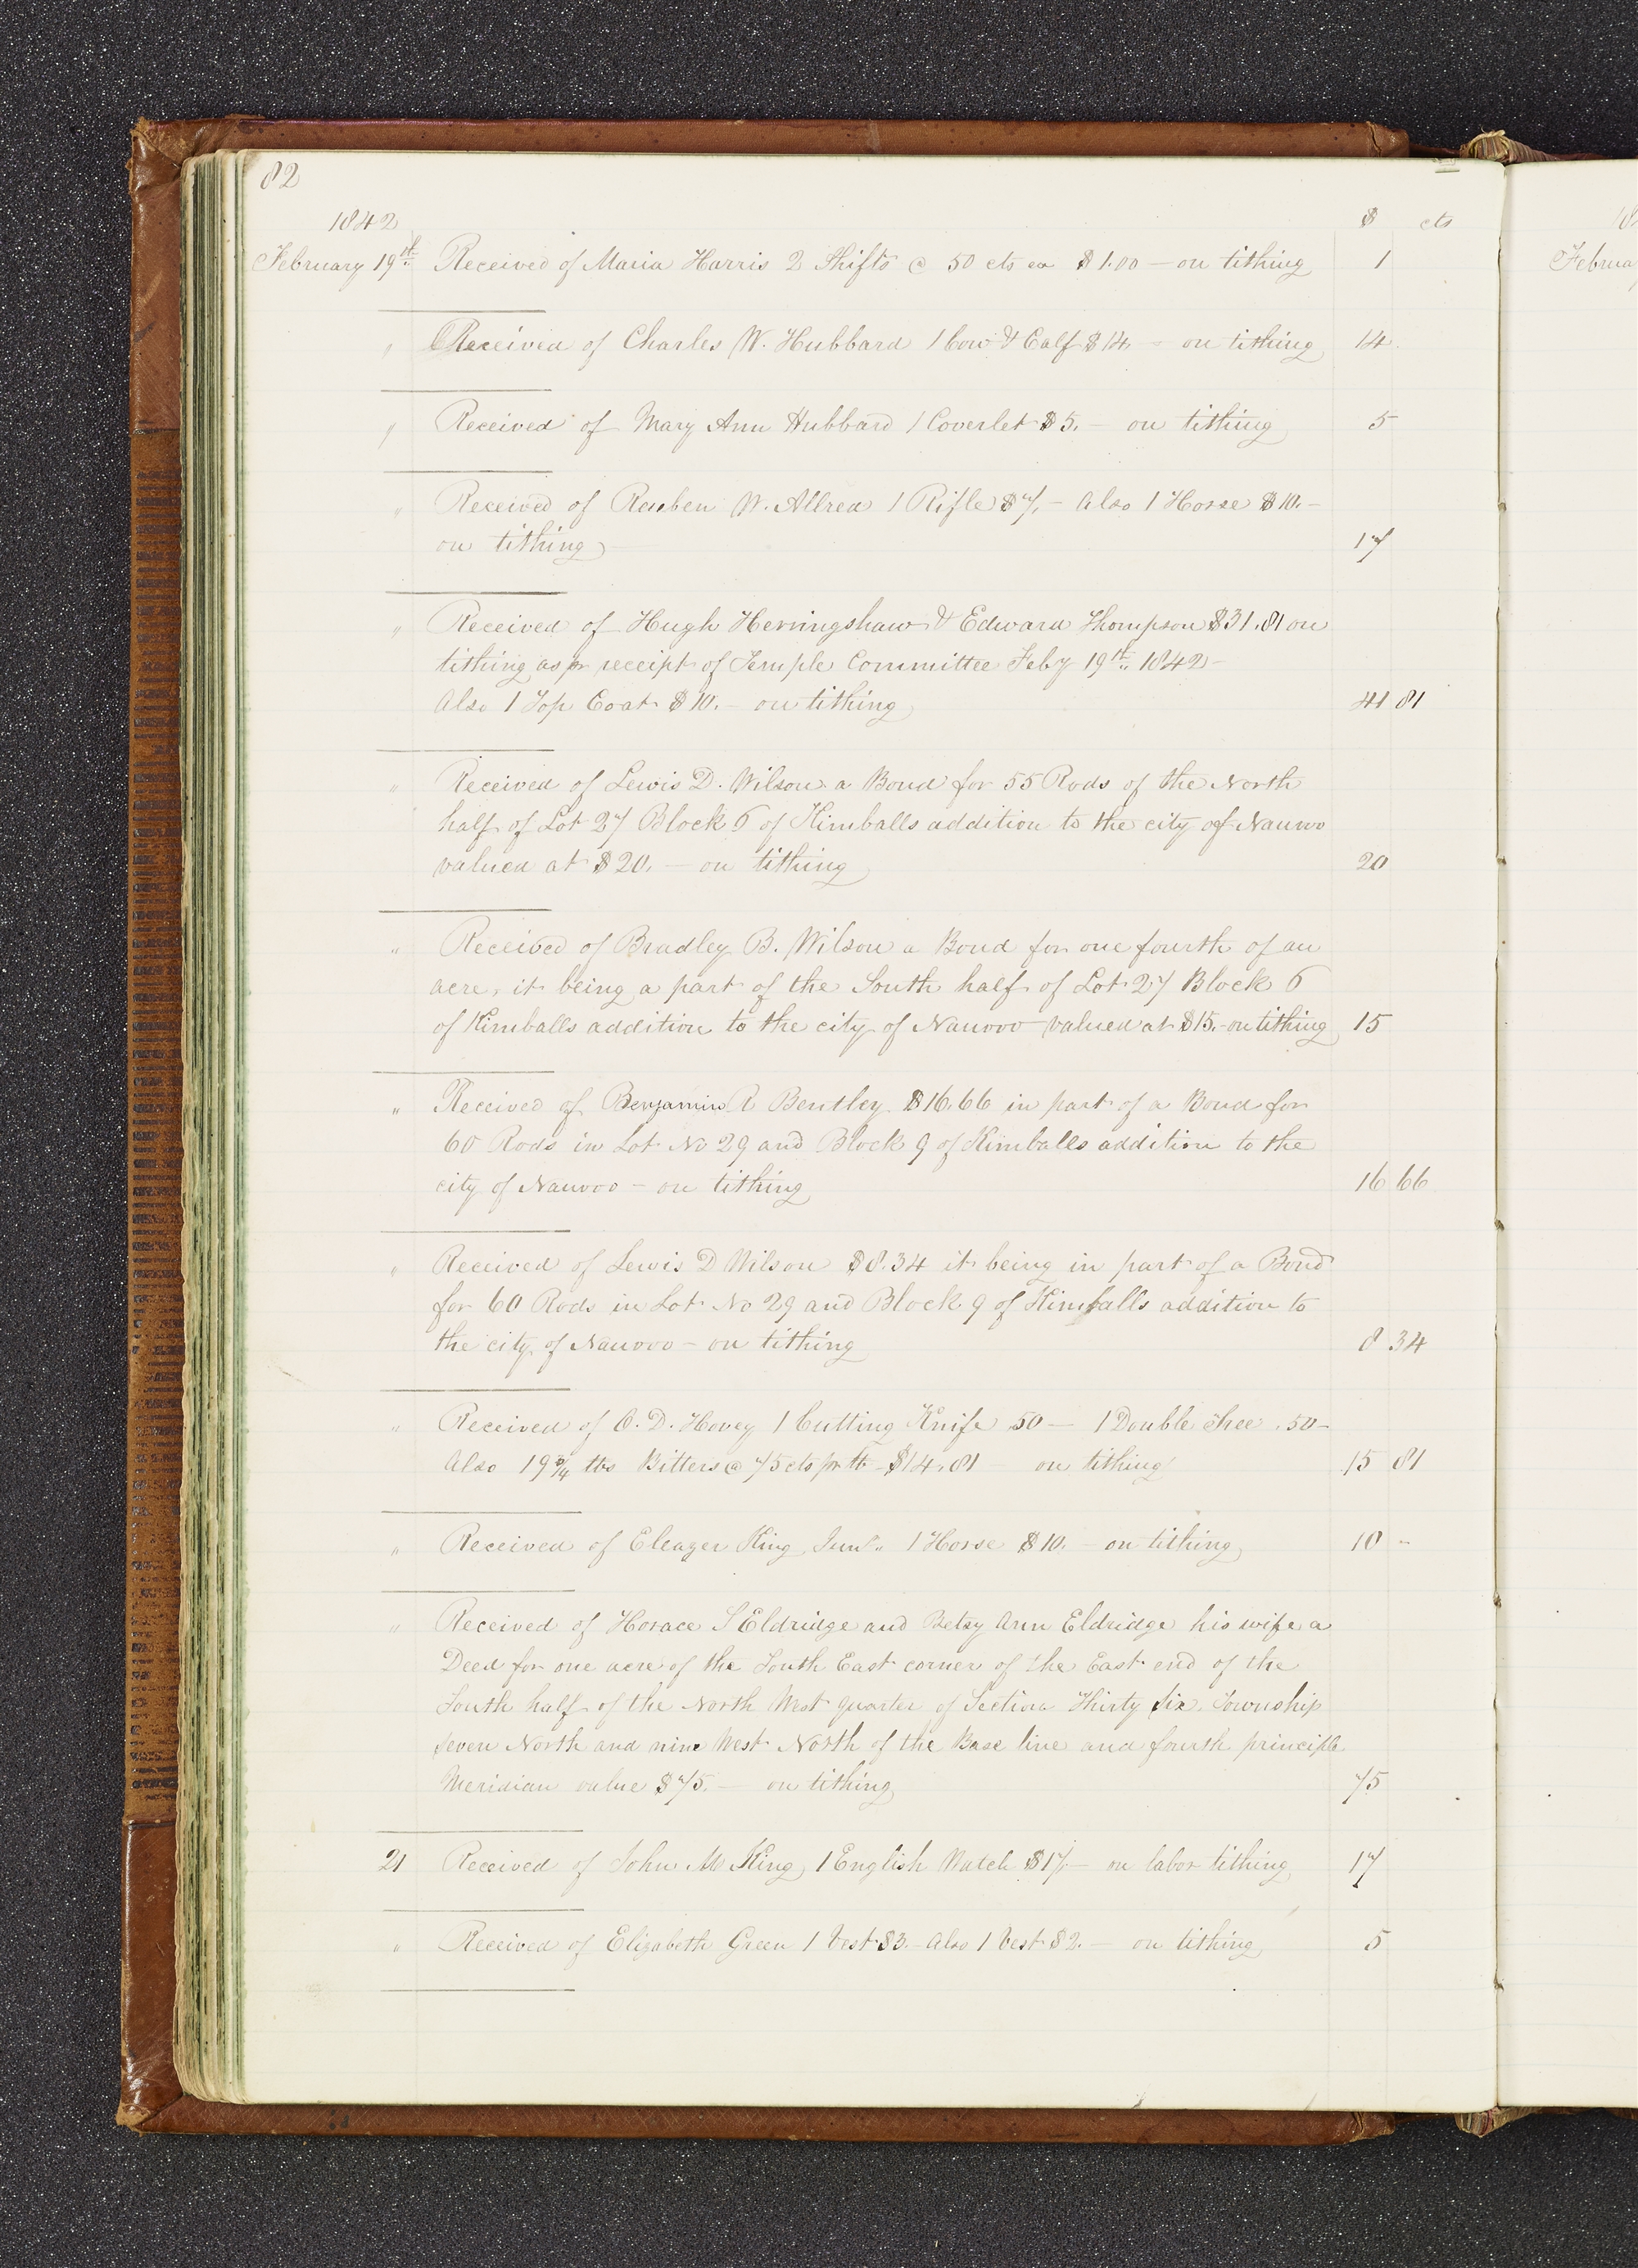 82
1842 $ cts
February 19th. Received of Maria Harris 2 Shifts @ 50 cts ea $1.00 — on tithing 1
" Received of Charles W. Hubbard 1 Cow & Calf $14. - on tithing 14
" Received of Mary Ann Hubbard 1 Coverlet $5. - on tithing 5
" Received of Reuben W. Allred 1 Rifle $7. - Also 1 Horse $10. -
on tithing 17
" Received of Hugh Herringshaw & Edward Thompson $31.81 on
tithing as pr receipt of Temple Committee Feby 19th. 1842 -
Also 1 Top Coat $10. - on tithing 41 81
" Received of Lewis D. Wilson a Bond for 55 Rods of the North
half of Lot 27 Block 6 of Kimballs addition to the city of Nauvoo
valued at $20. — on tithing 20
" Received of Bradley B. Wilson a Bond for one fourth of an
acre, it being a part of the South half of Lot 27 Block 6
of Kimballs addition to the city of Nauvoo valued at $15. - on tithing 15
" Received of Benjamin R Bentley $16.66 in part of a Bond for
60 Rods in Lot No 29 and Block 9 of Kimballs addition to the
city of Nauvoo - on tithing 16 66
" Received of Lewis D Wilson $8.34 it being in part of a Bond
for 60 Rods in Lot No 29 and Block 9 of Kimballs addition to
the city of Nauvoo - on tithing 8 34
" Received of O. D. Hovey 1 Cutting Knife 50 — 1 Double Tree .50 -
Also 19 3/4 lbs Bitters @ 75 cts pr lb - $14.81 - on tithing 15 81
" Received of Eleazer King Junr. 1 Horse $10. - on tithing 10 -
" Received of Horace S Eldridge and Betsy Ann Eldridge his wife a
Deed for one acre of the South East corner of the East end of the
South half of the North West quarter of Section Thirty six, Township
seven North and nine West North of the Base line and fourth principle
Meridian value $75. — on tithing 75
21 Received of John M King 1 English Watch $17. - on labor tithing 17
" Received of Elizabeth Green 1 Vest $3. - Also 1 Vest $2. — on tithing 5
18
Februa